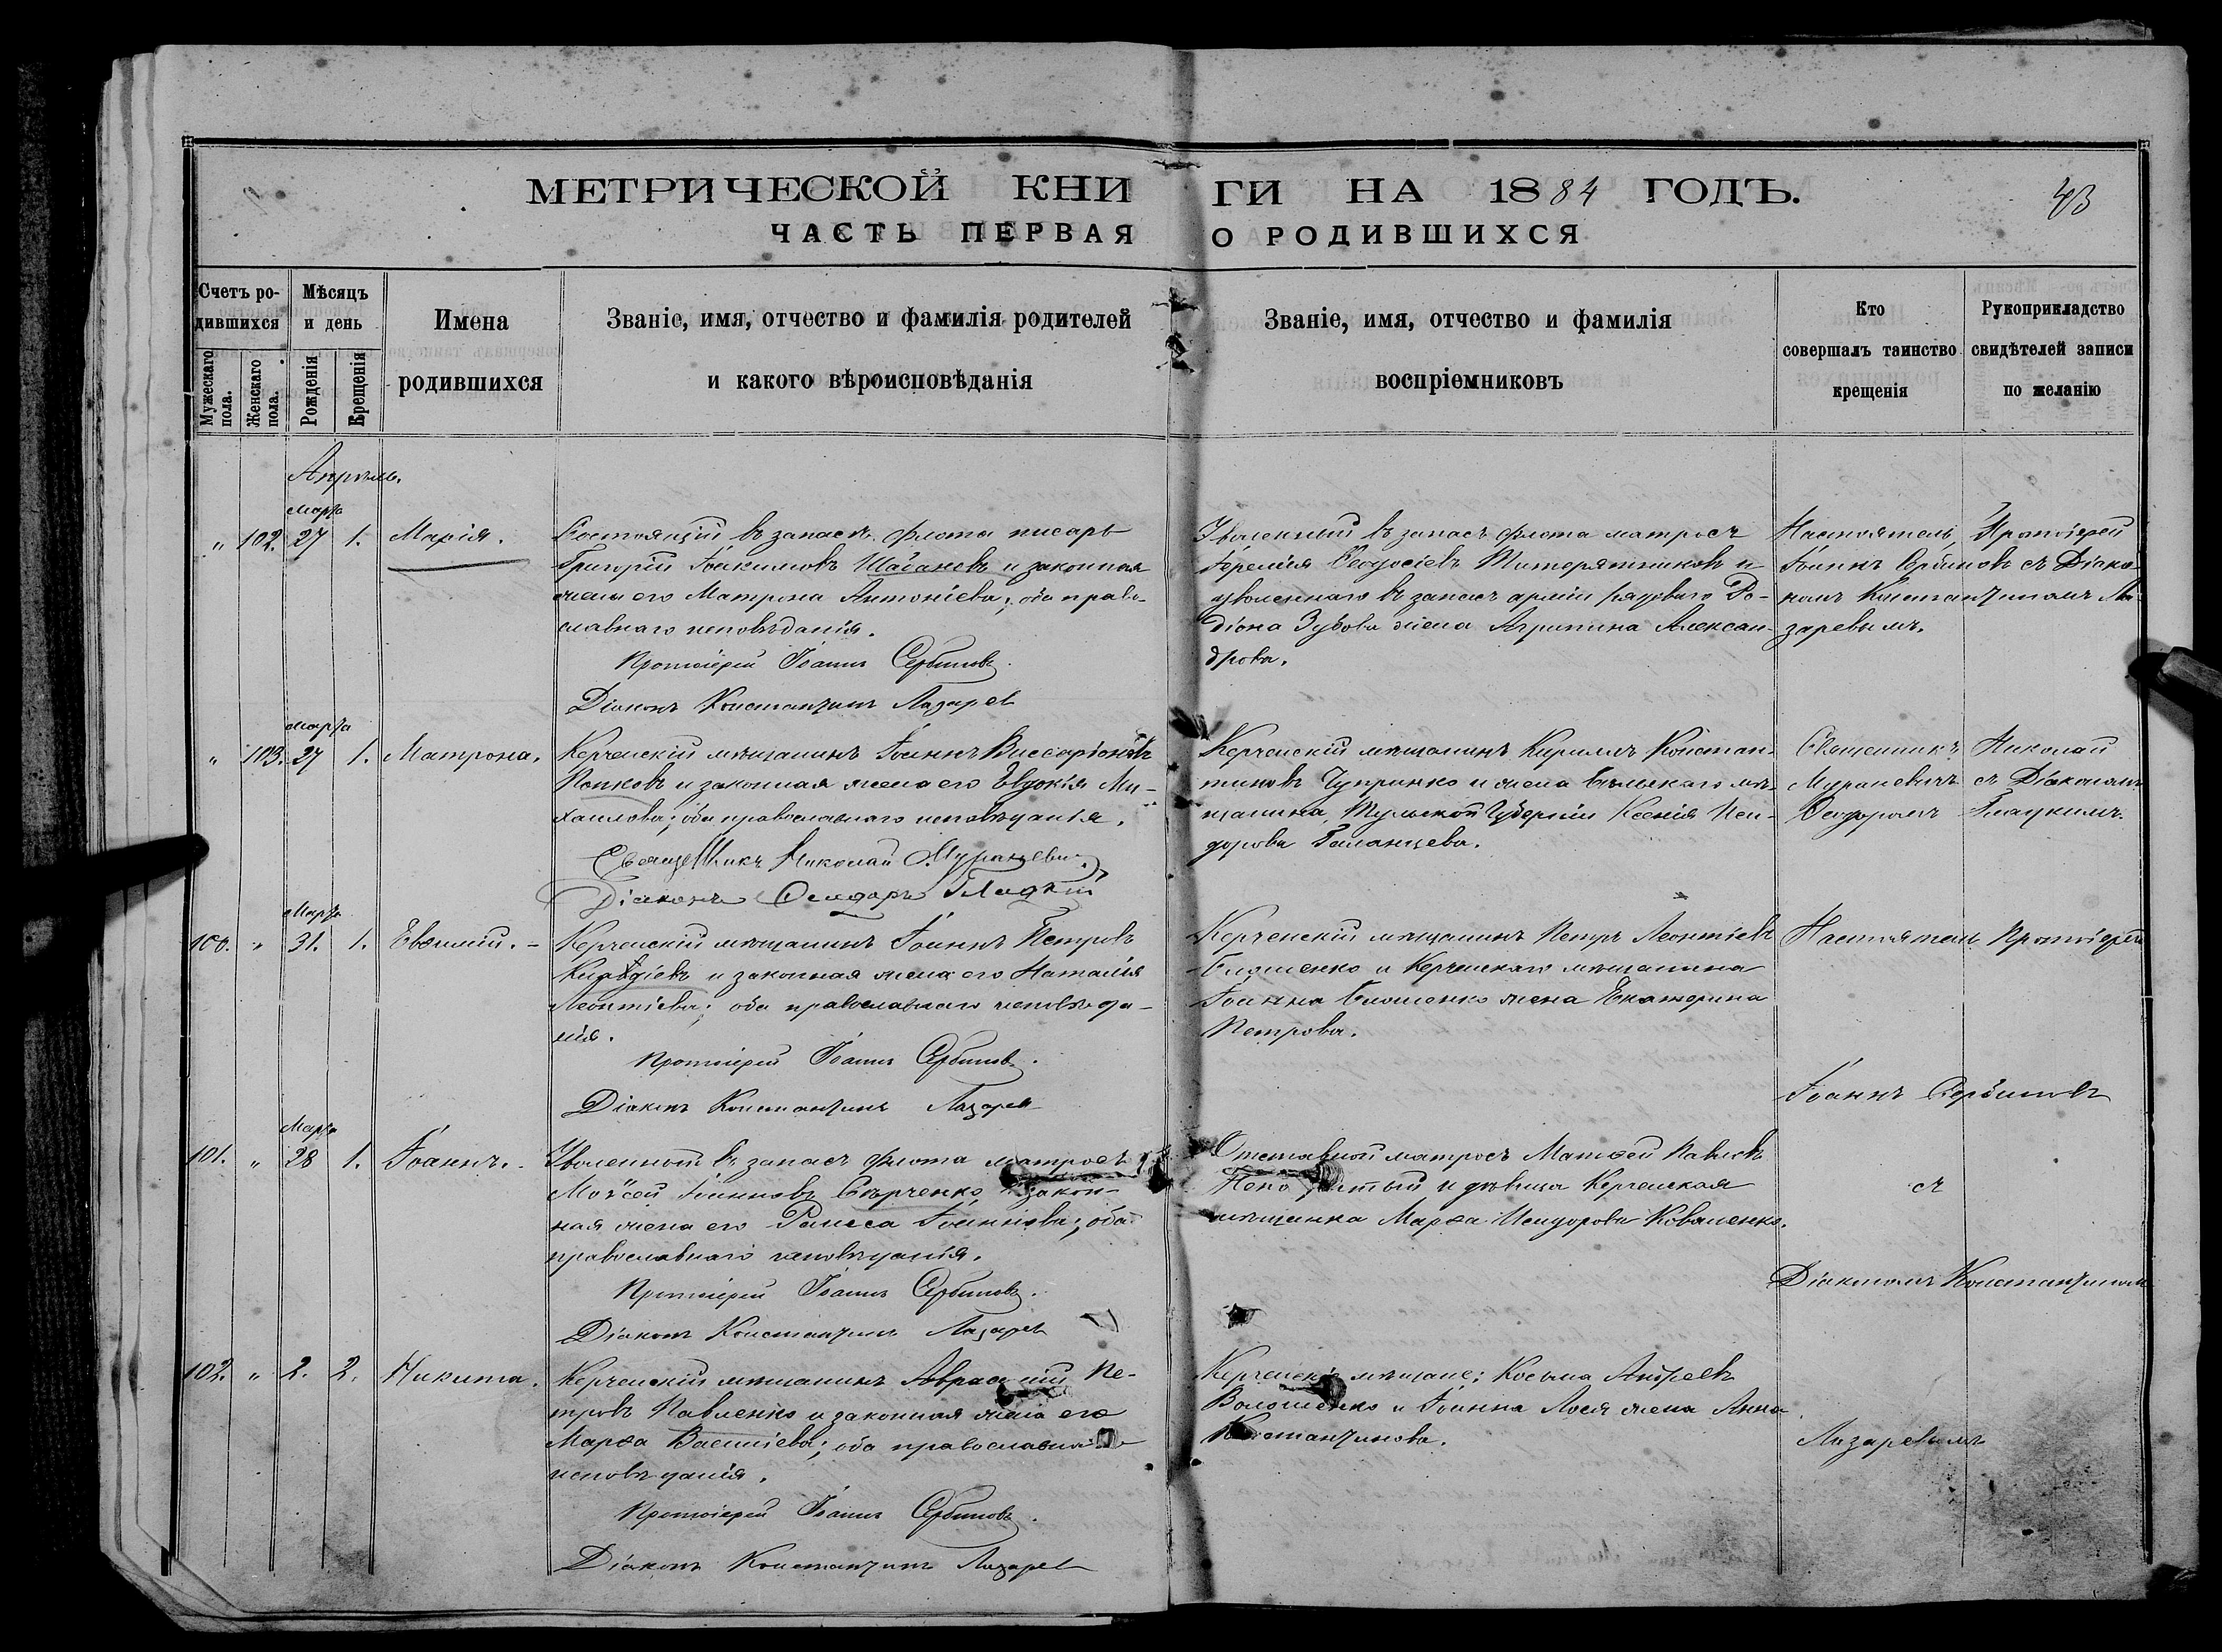 МЕТРИЧЕСКОЙ КНИ ГИ НА 1884 ГОДЪ.
43
ЧАСТЬ ПЕРВАЯ О РОДИВШИХСЯ
Счетъ родившихся
Мужескаго пола.
Женскаго пола.
Мѣсяцъ и день
Рожденія
Крещенія
Имена
родившихся
Званіе, имя, отчество и фамилія родителей
и какого вѣроисповѣданія
Званіе, имя, отчество и фамилія
воспріемниковъ
Кто
совершалъ таинство
крещенія
Рукоприкладство
свидѣтелей записи
по желанію
Апрѣль.
Марта
" 102. 27 1. Марія.
Состоящій въ запасѣ флота писарь
Григорій Іоакимовъ и законная
жена его Матрона Антоніева; оба право-
славнаго исповѣданія.
Протоіерей Іоаннъ Сербиновъ.
Діаконъ Константинъ Лазарев
Уволенный въ запасъ флота матросъ
Іеремія Ѳеодосіевъ и
уволеннаго въ запасъ арміи рядоваго Ро-
діона Зубова жена Агрипина Алексан-
дрова.
Настоятель, Протоіерей
Іоаннъ Сербиновъ съ Діако-
номъ Константиномъ Ла-
заревымъ.
Марта
" 103. 27 1. Матрона.
Керченскій мѣщанинъ Іоаннъ Виссаріоновъ
Попковъ и законная жена его Евдокія Ми-
хаилова; оба православнаго исповѣданія.
Священникъ Николай Мураневич
Діаконъ Ѳеодоръ Гладкій
Керченскій мѣщанинъ Кириллъ Констан-
тиновъ Чупринко и жена Бѣльскаго мѣ-
щанина, Тульской Губерніи Ксенія Иси-
дорова
Священникъ Николай
Мураневичъ съ Діакономъ
Ѳеодоромъ Гладкимъ.
Марта
100. " 31. 1. Евѳимій.
Керченскій мѣщанинъ Іоаннъ Петровъ
и законная жена его Наталія
Леонтіева; оба православнаго исповѣда-
нія.
Протоіерей Іоаннъ Сербинов.
Діаконъ Константинъ Лазарев
Керченскій мѣщанинъ Петръ Леонтіевъ
Блошенко и Керченскаго мѣщанина
Іоанна Блошенко жена Екатерина
Петрова.
Настоятель Протоіерей
Іоаннъ Сербиновъ
Марта
101. " 28 1. Іоаннъ.
Уволенный въ запасъ флота матросъ
Моѵсей Іоанновъ и закон-
ная жена его Раиса Іоаннова; оба
православнаго исповѣданія.
Протоіерей Іоаннъ Сербиновъ.
Діаконъ Константинъ Лазарев
Отставной матросъ Матѳей Павловъ
и дѣвица Керченская
мѣщанка Марѳа Исидорова Коваленко.
съ
Діакономъ Константиномъ
102. " 2. 2. Никита.
Керченскій мѣщанинъ Авраамій Пе-
тровъ Павленко и законная жена его
Марѳа Василіева; оба православнаго
исповѣданія.
Протоіерей Іоаннъ Сербиновъ.
Діаконъ Константинъ Лазарев
Керченскіе мѣщане: Косьма Андреевъ
Волошенко и Іоанна Лося жена Анна
Константинова.
Лазаревымъ